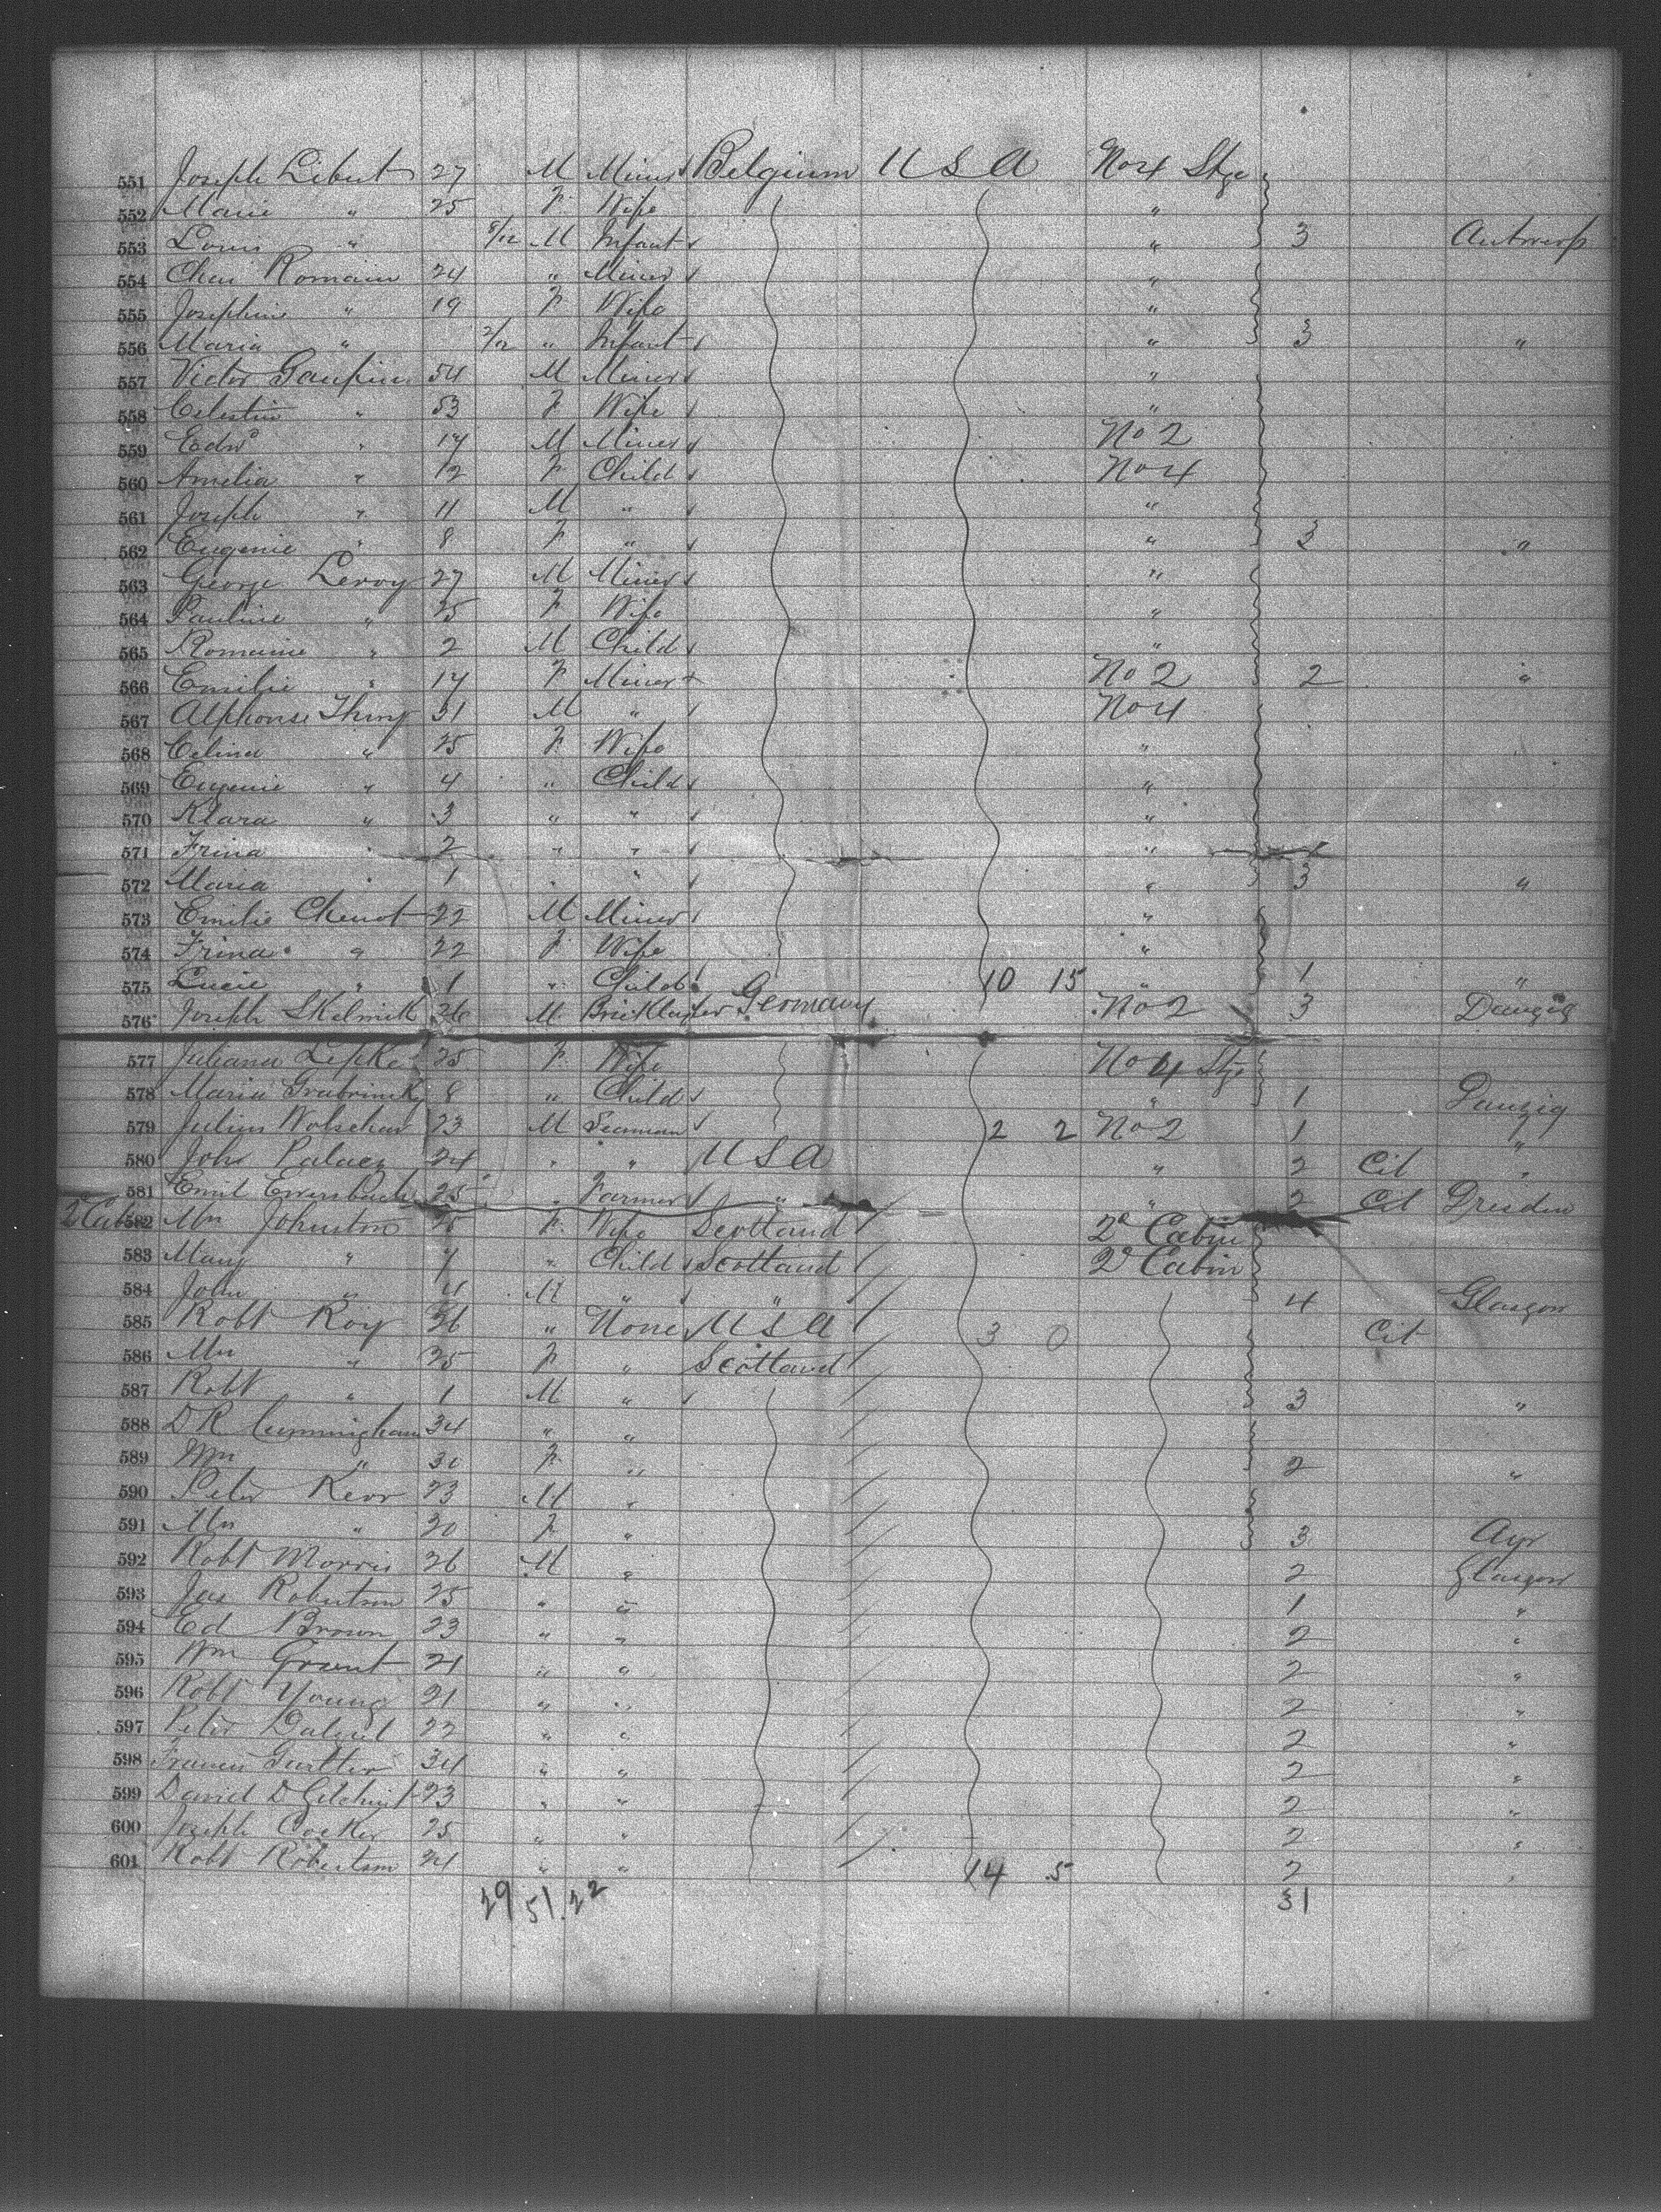 551 Joseph Libert 27 M Miner Belgium U S A No 4 Stge
552 Marie " 25 F Wife "
553 Louis " 8/12 M Infant " 3 Antwerp
554 Chas Romain 24 " Miner "
555 Josephine " 19 F Wife "
556 Maria " 2/12 " Infant " 3 "
557 Victor Gaupin 54 M Miner "
558 Celestin " 53 F Wife "
559 Edwd " 17 M Miner No 2
560 Amelia " 12 F Child No 4
561 Joseph " 11 M " "
562 Eugenie " 8 F " " 3 "
563 George Leroy 27 M Miner "
564 Pauline " 25 F Wife "
565 Romaine " 2 M Child "
566 Emilie " 17 F Miner No 2 2 "
567 Alphonse Thiry 31 M " No 4
568 Celina " 25 F Wife "
569 Eugenie " 4 " Child "
570 Klara " 3 " " "
571 Irina " 2 " " "
572 Maria " 1 " " " 3 "
573 Emilie Chenot 22 M Miner "
574 Irina " 22 F Wife "
575 Lucie " 1 " Child 10 15 " 1 "
576 Joseph Skelmik 26 M Bricklayer Germany No 2 3 Danzig
577 Juliana Lepke 25 F Wife No 4 Stge
578 Maria Grabrinsky 8 " Child " 1 Danzig
579 Julius 23 M Seaman 2 2 No 2 1 "
580 John 24 " " U S A " 2 Cit "
581 Emil 25 " Farmer " " 2 Cit Dresden
2 Cabin 582 Mrs Johnston 26 F Wife Scotland 2d Cabin
583 Mary " 7 " Child Scotland 2d Cabin
584 John " 4 M " " 4 Glasgow
585 Robt Roy 36 " None U S A 3 0 Cit
586 Mrs " 25 F " Scotland
587 Robt " 1 M " 3 "
588 D R Cunningham 34 " "
589 Mrs " 30 F " 2 "
590 Peter Kerr 23 M "
591 Mrs " 20 F " 3 Ayr
592 Robt Morris 26 M " 2 Glasgow
593 Jas Robertson 25 " " 1 "
594 Ed Brown 23 " " 2 "
595 Wm Grant 21 " " 2 "
596 Robt Young 21 " " 2 "
597 Peter Dalziel 22 " " 2 "
598 Francis 34 " " 2 "
599 David D Gilchrist 23 " " 2 "
600 Joseph Cocker 25 " " 2 "
601 Robt Robertson 24 " " 14 5 2 "
29 51. 22 31